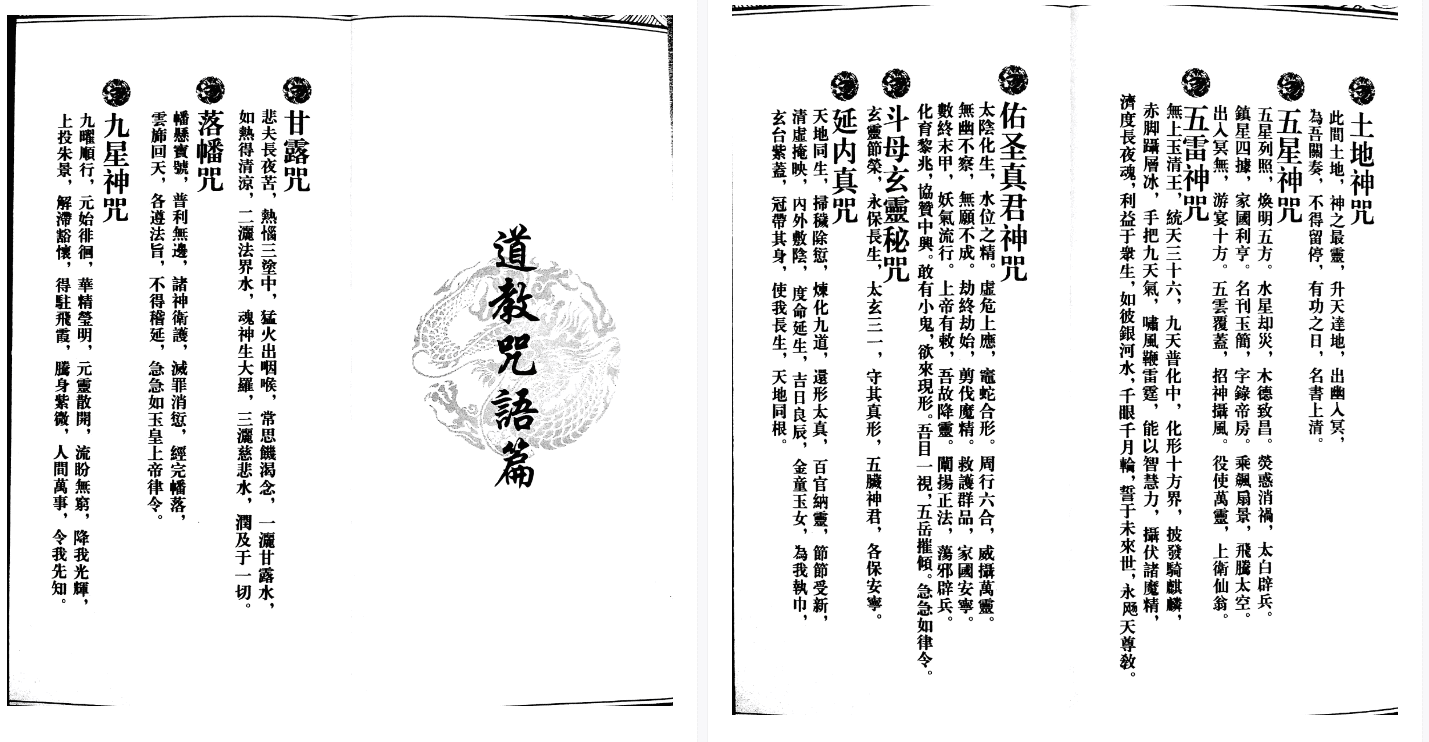 道教咒語篇
甘露咒
悲夫長夜苦，熱惱三塗中，猛火出咽喉，常思饑渴念，一灑甘露水，
如熱得清涼，二灑法界水，魂神生大羅，三灑慈悲水，潤及于一切。
落幡咒
幡懸寶號，普利無邊，諸神衛護，滅罪消愆，經完幡落，
雲旆回天，各遵法旨，不得稽延，急急如玉皇上帝律令。
九星神咒
九曜順行，元始徘徊，華精瑩明，元靈散開，流盼無窮，降我光輝，
上投朱景，解滯豁懷，得駐飛霞，騰身紫微，人間萬事，令我先知。
土地神咒
此間土地，神之最靈，升天達地，出幽入冥，
為吾關奏，不得留停，有功之日，名書上清。
五星神咒
五星列照，煥明五方。水星却災，木德致昌。熒惑消禍，太白辟兵。
鎮星四據，家國利亨。名刊玉簡，字錄帝房。乘飆扇景，飛騰太空。
出入冥無，游宴十方。五雲覆蓋，招神攝風。役使萬靈，上衛仙翁。
五雷神咒
無上玉清王，統天三十六，九天普化中，化形十方界，披發騎麒麟，
赤脚躡層冰，手把九天氣，嘯風鞭雷霆，能以智慧力，攝伏諸魔精，
濟度長夜魂，利益于衆生，如彼銀河水，千眼千月輪，誓于未來世，永颺天尊教。
佑圣真君神咒
太陰化生，水位之精。虛危上應，竈蛇合形。周行六合，威攝萬靈。
無幽不察，無願不成。劫終劫始，剪伐魔精。救護群品，家國安寧。
數終末甲，妖氣流行。上帝有敕，吾故降靈。闡揚正法，蕩邪辟兵。
化育黎兆，協贊中興。敢有小鬼，欲來現形。吾目一視，五岳摧傾。急急如律令。
斗母玄靈秘咒
玄靈節榮，永保長生，太玄三一，守其真形，五臟神君，各保安寧。
延内真咒
天地同生，掃穢除愆，煉化九道，還形太真，百官納靈，節節受新，
清虛掩映，内外敷陰，度命延生，吉日良辰，金童玉女，為我執巾，
玄台紫蓋，冠帶其身，使我長生，天地同根。